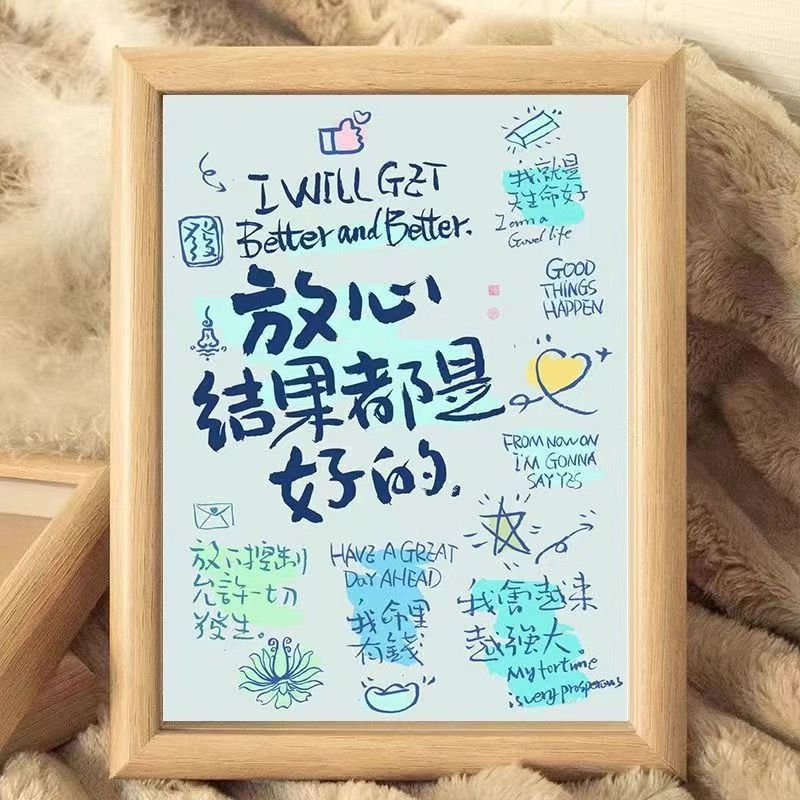 I WILL GET
Better and Better.
發
放心
结果都是
好的.
我就是
天生命好
I am a
Good life
GOOD
THINGS
HAPPEN
FROM NOW ON
I'M GONNA
SAY YES
放下控制
允許一切
發生。
HAVE A GREAT
DAY AHEAD
我命里
有錢
我會越来
越强大.
My fortune
is very prosperous